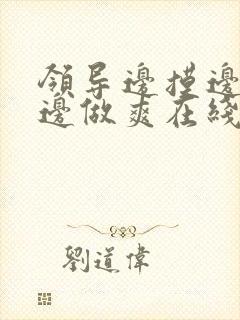 領导邊摸邊
邊做爽在綫
劉道偉